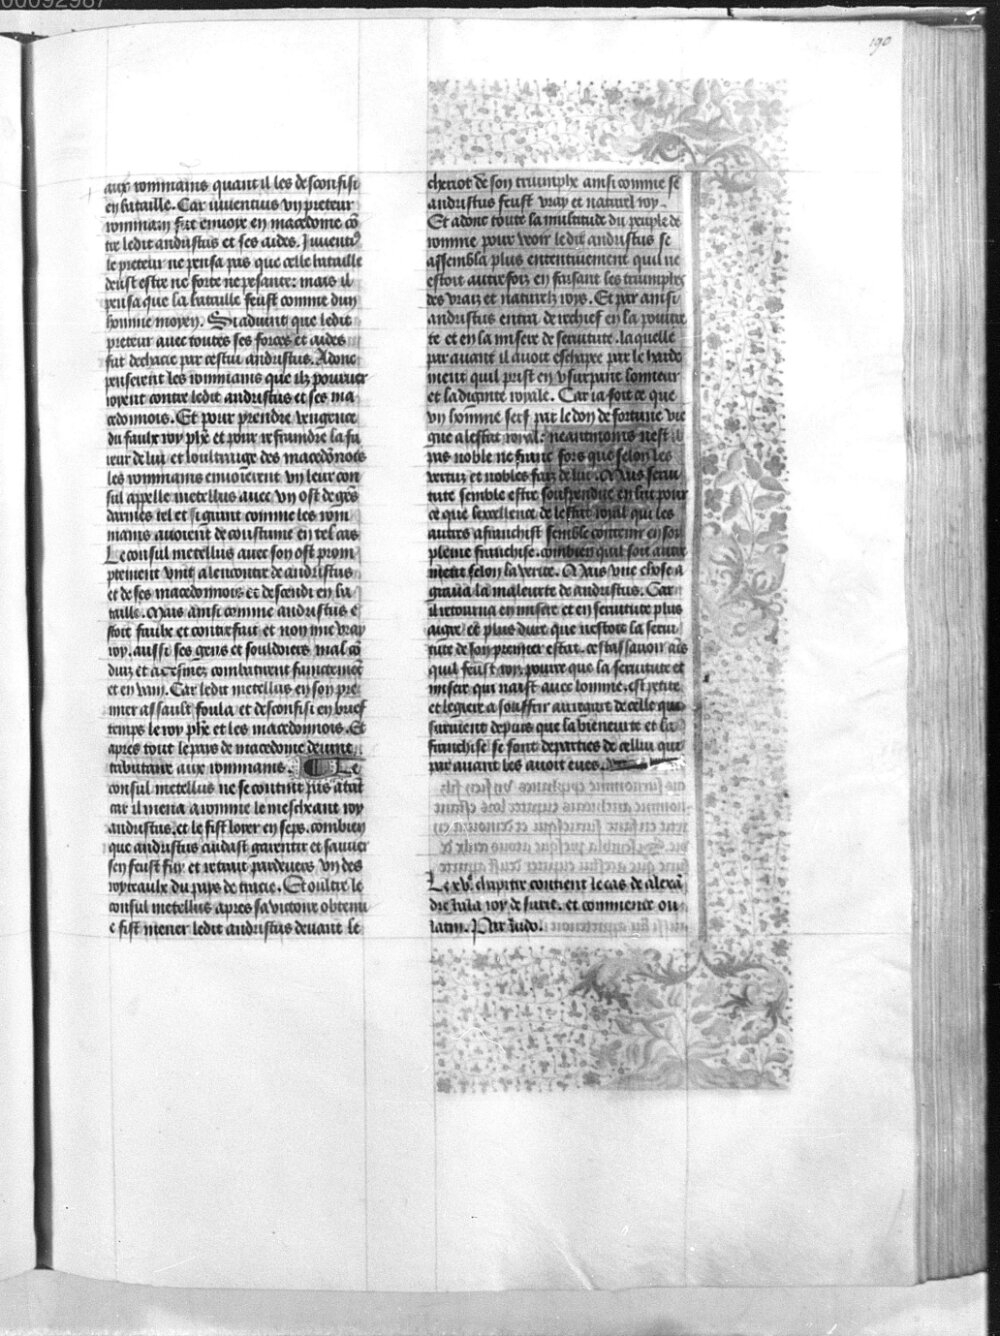 00092987
190
aux rommains quant il les desconfisi
en bataille. Car iuuencius vn preteur
rommain fut enuoie en macedoine cõ
tre ledit andriscus et ses aides. Iuuenti9
le preteur ne pensa pas que celle bataille
deust estre ne forte ne pesante: mais il
pensa que la bataille feust comme dun
homme moyen. Si aduint que ledit
preteur auec toutes ses forces et aides
fut dechacie par cestui andriscus. Adonc
penserent les rommains que ilz pouruer
roient contre ledit andriscus et ses ma
cedonnois. Et pour prendre vengence
du faulx roy phẽ et pour refraindre la fu
reur de lui et loultrage des macedõnois
les rommains enuoierent vn leur con
sul appelle metellus auec vn ost de gẽs
darmes tel et si grant comme les rom
mains auoient de coustume en tel cas
Le consul metellus auec son ost prom
ptement vint alencontre de andriscus
et de ses macedonnois et descendi en ba
taille. Mais ainsi comme andriscus e
stoit faulx et contrefait et non mie vray
roy. aussi ses gens et souldoiers mal cõ
duiz et combatirent
et en vain. Car ledit metellus en son pre
mier assault foula et desconfisi en brief
temps le roy phẽ et les macedonnois. Et
apres tout le pais de macedoine deuint
tabutaire aux rommains. Le
consul metellus ne se contint pas atãt
car il mena a romme le mescheant roy
andriscus. et le fist loier en seps. combien
que andriscus cuidast garentir et sauuer
sen feust fuy et retrait pardeuers vn des
royteaulx du pays de tracie. Et oultre le
consul metellus apres sa victoire obtenu
e fist mener ledit andriscus deuant le
cheriot de son triumphe ainsi comme se
andriscus feust vray et naturel roy.
Et adonc toute la multitude du peuple de
romme pour veoir ledit andriscus se
assembla plus ententiuement quil ne
estoit autrefoiz en faisant les triumphes
des vraiz et naturelz roys. Et par ainsi
andriscus entra de rechief en la pouure
te et en la misere de seruitute. laquelle
par auant il auoit eschapee par le harde
ment quil prist en vsurpant lonneur
et la dignite royale. Car ia soit ce que
vn homme serf par le don de fortune vie
gne a lestat roial: neantmoins nest il
pas noble ne franc fors que selon les
vertuz et nobles faiz de lui. Mais serui
tute semble estre souspendue en lui pour
ce que lexcellence de lestat roial qui les
autres afranchist semble contenir en soy
pleine franchise. combien quil soit autre
ment selon la verite. Mais vne chose a
graua la maleurte de andriscus. Car
il retourna en misere et en seruitute plus
aigre et plus dure que nestoit la serui
tute de son premier estat. cestassauoir ains
quil feust roy. pource que la seruitute et
misere qui naist auec lomme. est petite
et legiere a souffrir au regart de celle qui
suruient depuis que la bieneurte et la
franchise se sont departies de cellui qui
par auant les auoit eues.
Le xv.e chapitre contient le cas de alexã
dre roy de surie. et commence ou
latin. Par ludo.